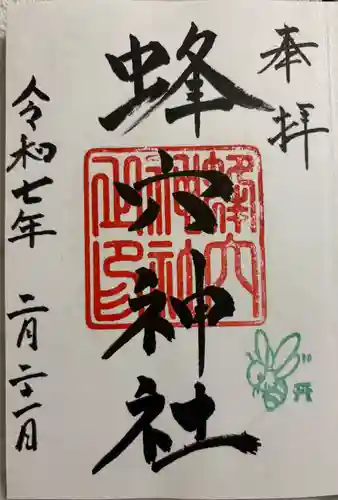 奉拝
蜂穴神社
蜂穴
神社
之印
令和七年 二月二十一日